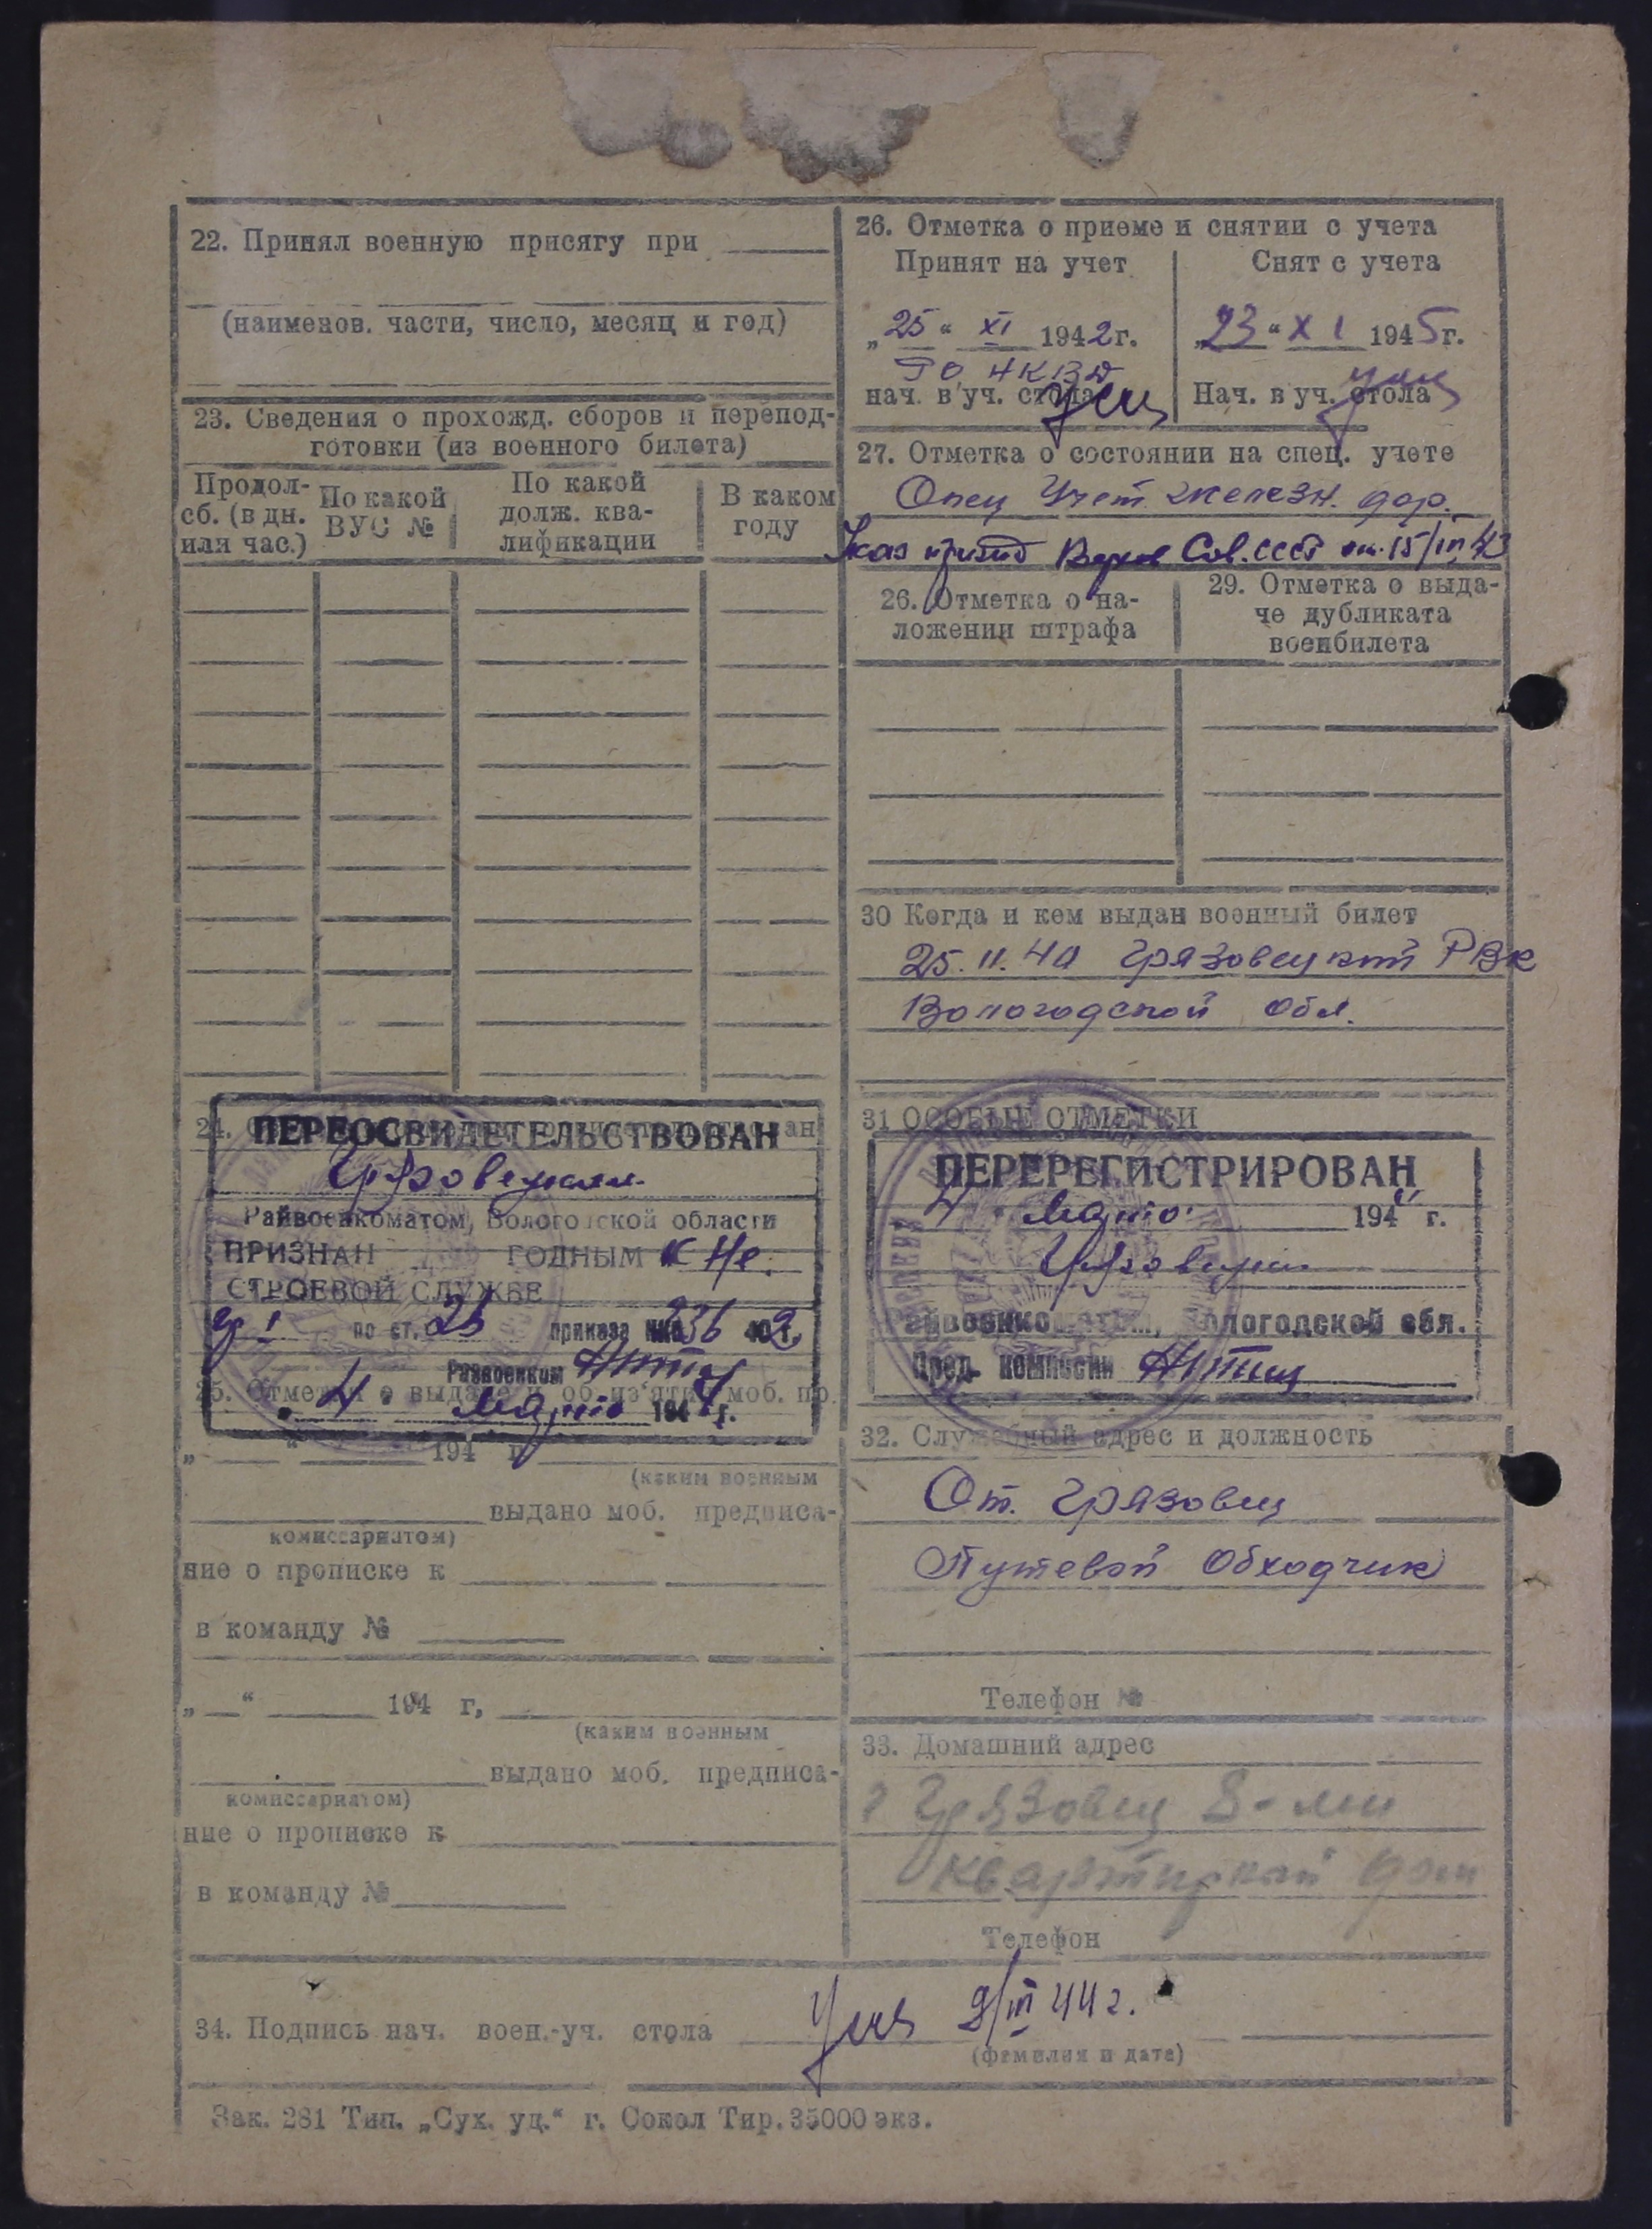 22. Принял военную присягу при
(наименов. части, число, месяц и год)
23. Сведения о прохожд. сборов и перепод-
готовки (из военного билета)
Продол-
сб. (в дн.
или час.)
По какой
ВУС №
По какой
долж. ква-
лификации
В каком
году
24.
ПЕРЕОСВИДЕТЕЛЬСТВОВАН
Райвоенкоматом, Вологодской области
ПРИЗНАН ГОДНЫМ к не
СТРОЕВОЙ СЛУЖБЕ
гр I по ст. приказа 336
Райвоенком
25. Отметка о выдаче и об из'ятии моб. пр.
4 Марта 194 г.
„ “ 194 г.
(каким военным
выдано моб. предписа-
комиссариатом)
ние о прописке к
в команду №
„ “ 194 г,
(каким военным
выдано моб. предписа-
комиссариатом)
ние о прописке к
в команду №
26. Отметка о приеме и снятии с учета
Принят на учет
„25“ XI 1942г.
РО НКВД
нач. в уч. стола
Снят с учета
„23“ XI 1945г.
Нач. в уч. стола
27. Отметка о состоянии на спец. учете
Спец Учет железн. дор.
Указ презид Верхов Сов. СССР от 15/IV 43
26. Отметка о на-
ложении штрафа
29. Отметка о выда-
че дубликата
военбилета
30 Когда и кем выдан военный билет
25.11.40 Грязовецкий РВК
Вологодской Обл.
31 ОСОБЫЕ ОТМЕТКИ
ПЕРЕРЕГИСТРИРОВАН
4 Марта 194 г.
Райвоенкоматом, Вологодской обл.
Пред. комиссии
32. Служебный адрес и должность
Ст. Грязовец
Путевой Обходчик
Телефон №
33. Домашний адрес
г Грязовец 8-ми
квартирный дом
Телефон
34. Подпись нач. воен.-уч. стола /III 44 г.
(фамилия и дата)
Зак. 281 Тип. „Сух. уд.“ г. Сокол Тир. 35000 экз.